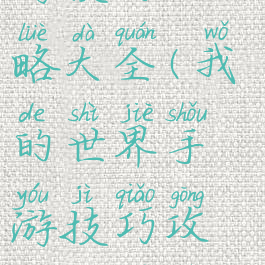 lüè dà quán wǒ
略大全(我
de shì jiè shǒu
的世界手
yóu jì qiǎo gōng
游技巧攻